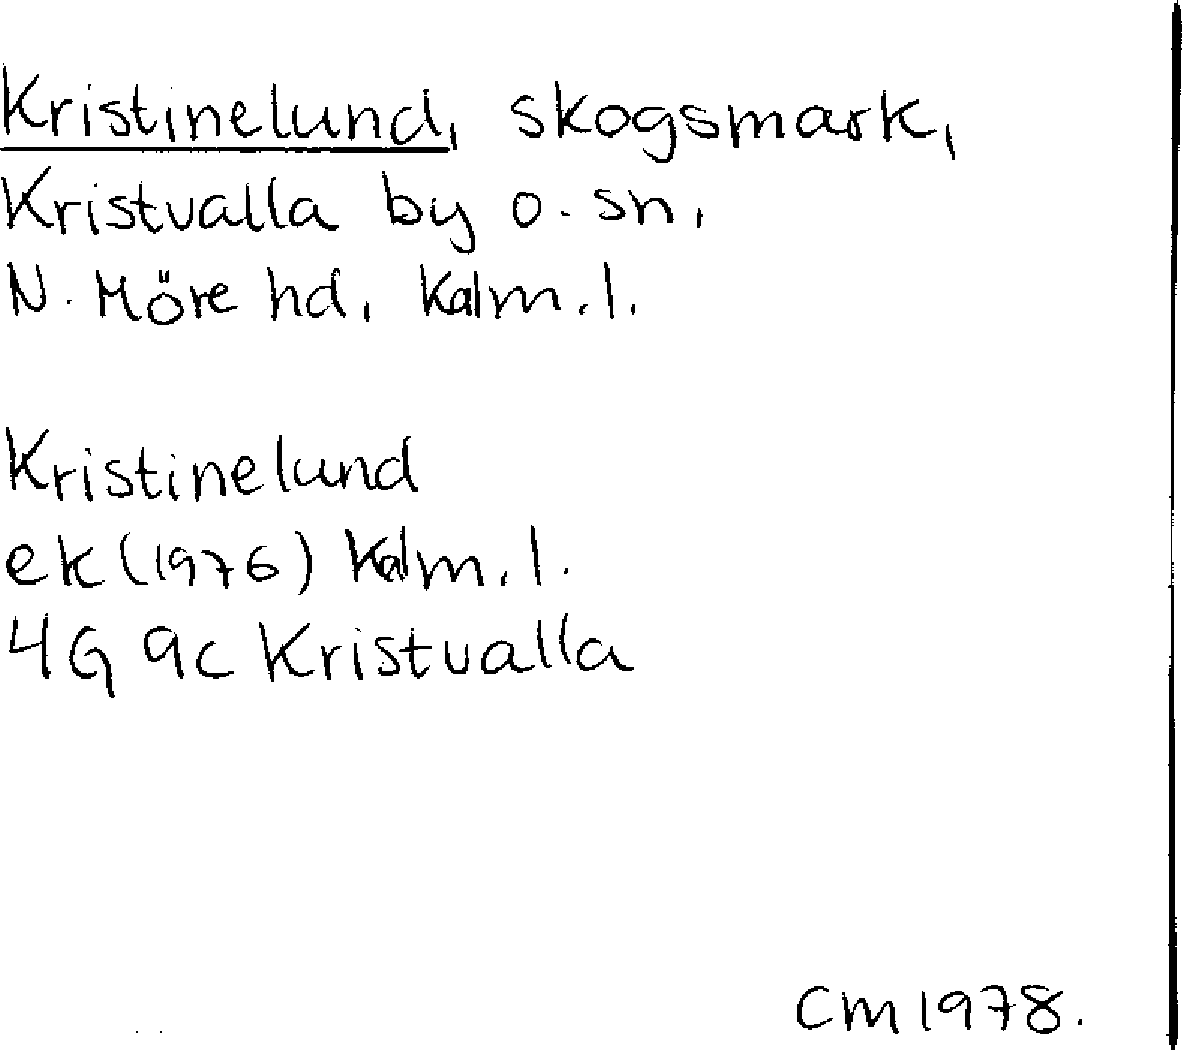 Kristinelund, skogsmark,
Kristvalla by o. sn,
N. Möre hd, Kalm. l.
Kristinelund
ek (1976) Kalm. l.
4G 9c Kristvalla
CM 1978.